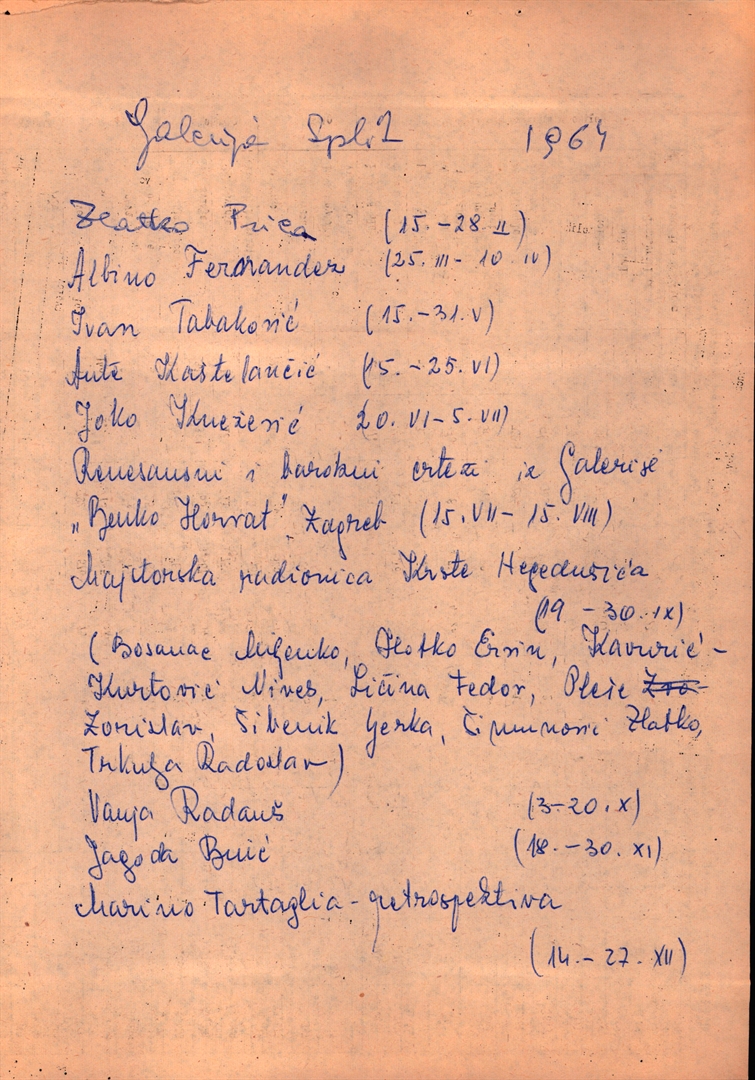 Galerija Split 1964
Zlatko Prica (15.-28 II)
Albino Fernandez (25. III - 10 IV)
Ivan Tabaković (15.-31. V)
Ante Kaštelančić (15.-25. VI)
Joko Knežević 20. VI-5. VII)
Renesansni i barokni crteži iz Galerije
„Benko Horvat" Zagreb (15. VII - 15. VIII)
Majstorska radionica Krste Hegedušića
(19 - 30. IX)
(Bosanac Miljenko, Hotko Ervin, Kavurić-
Kurtović Nives, Ličina Fedor, Pleše
Zorislav, Šibenik Jerka, Šimunović Zlatko,
Trkulja Radoslav)
Vanja Radauš (3-20. X)
Jagoda Buić (18.-30. XI)
Marino Tartaglia - retrospektiva
(14.-27. XII)